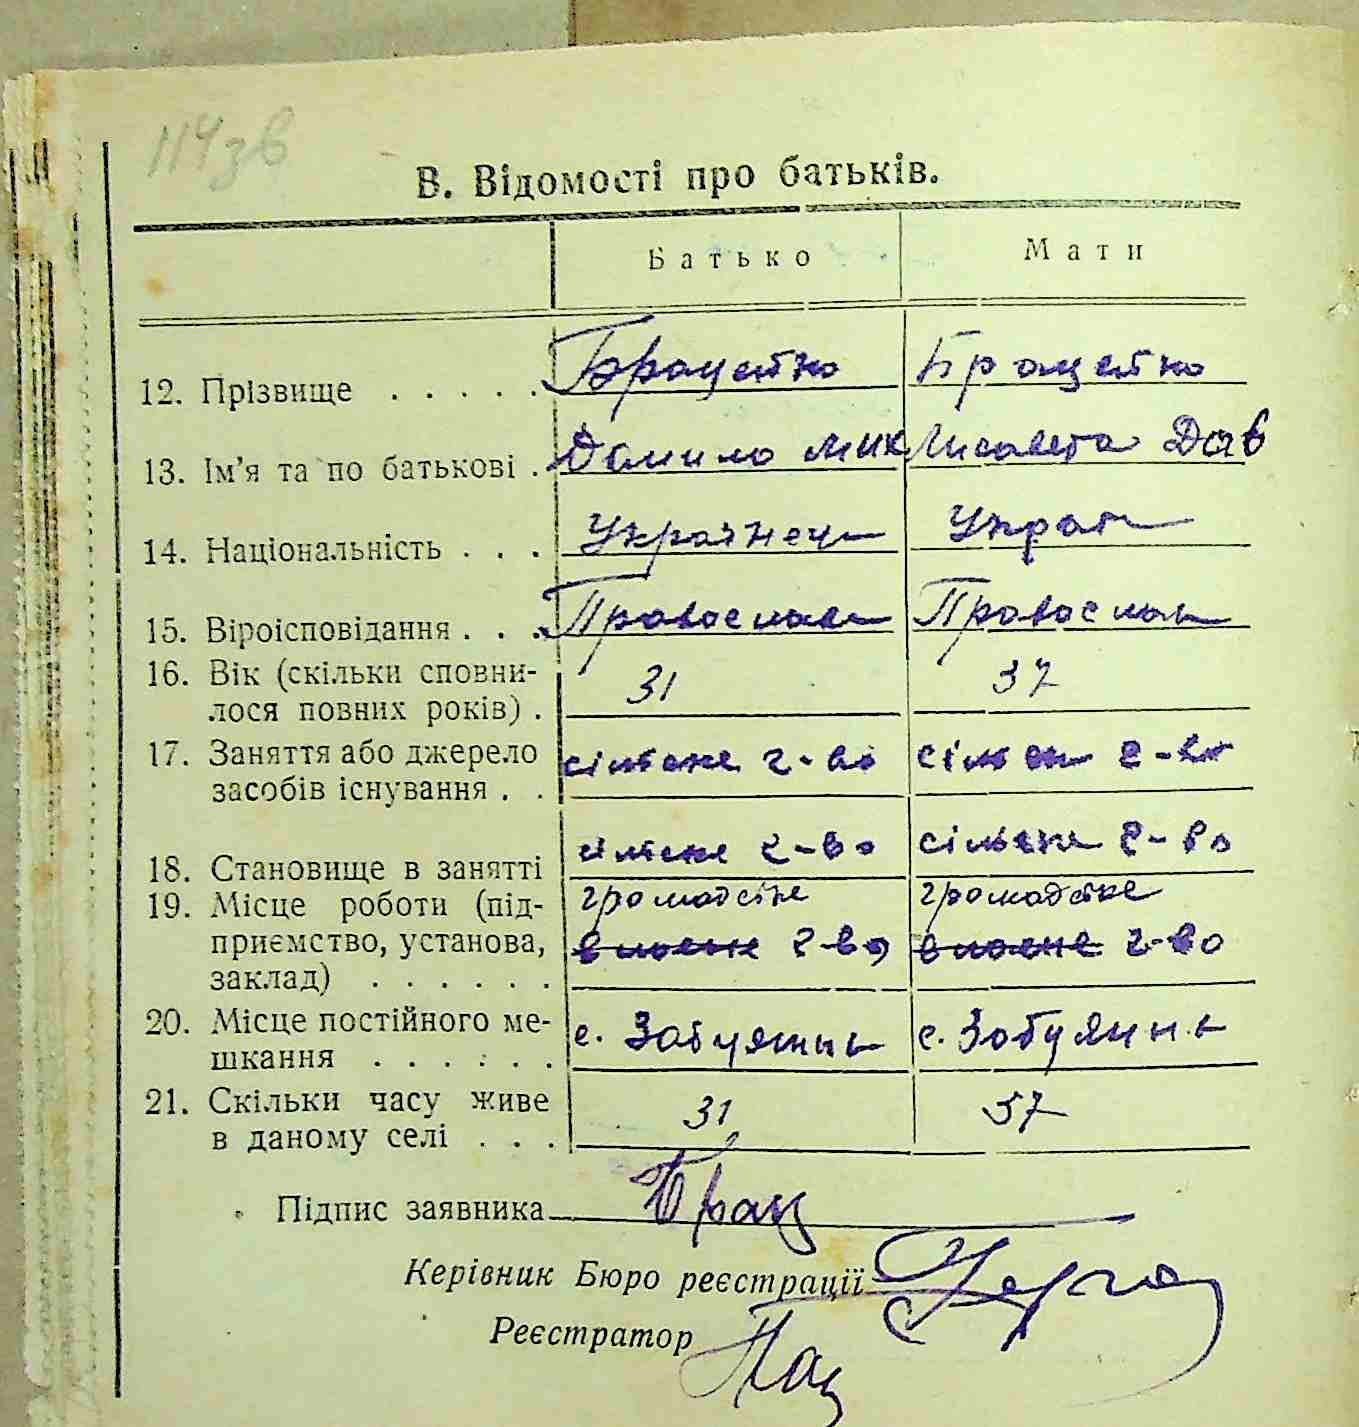 114зв
В. Відомості про батьків.
Батько Мати
12. Прізвище . . . . . Брацейко Брацейко
13. Ім'я та по батькові . Данило Мик Лисавета Дав
14. Національність . . . Українец Украї
15. Віроісповідання . . . Православ Православ
16. Вік (скільки сповни-
лося повних років) . 31 37
17. Заняття або джерело
засобів існування . . сільске г-во сільск г-во
18. Становище в занятті сільске г-во сільске г-во
19. Місце роботи (під- громадске громадске
приємство, установа, власне г-во власне г-во
заклад) . . . . . .
20. Місце постійного ме- с. Забуянь с. Забуянь
шкання . . . . . .
21. Скільки часу живе
в даному селі . . . 31 37
Підпис заявника Брац
Керівник Бюро реєстрації
Реєстратор